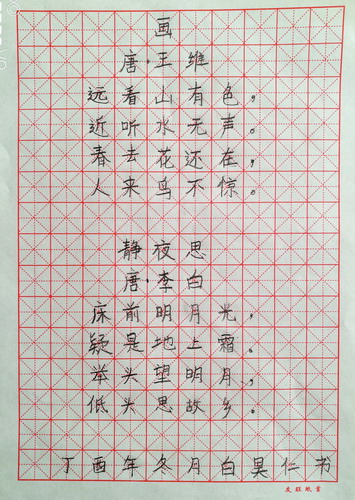 画
唐·王维
远看山有色，
近听水无声。
春去花还在，
人来鸟不惊。
静夜思
唐·李白
床前明月光，
疑是地上霜。
举头望明月，
低头思故乡。
丁酉年冬月白昊仁书